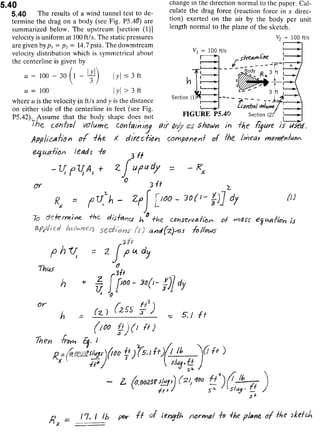 5.40
5.40 The results of a wind tunnel test to de-
termine the drag on a body (see Fig. P5.40) are
summarized below. The upstream [section (1)]
velocity is uniform at 100 ft/s. The static pressures
are given by p₁ = p₂ = 14.7 psia. The downstream
velocity distribution which is symmetrical about
the centerline is given by
u = 100 − 30 (1 − |y|/3) |y| ≤ 3 ft
u = 100 |y| > 3 ft
where u is the velocity in ft/s and y is the distance
on either side of the centerline in feet (see Fig.
P5.42). Assume that the body shape does not
change in the direction normal to the paper. Cal-
culate the drag force (reaction force in x direc-
tion) exerted on the air by the body per unit
length normal to the plane of the sketch.
V₁ = 100 ft/s
V₂ = 100 ft/s
streamline
Body
Rₓ
3 ft
h
3 ft
Section (1)
control volume
FIGURE P5.40
Section (2)
The control volume containing air only as shown in the figure is used.
Application of the x direction component of the linear momentum
equation leads to
− U₁ ρ U₁ A₁ + 2 ∫₀^{3 ft} u ρ u dy = − Rₓ
or
Rₓ = ρ U₁² h − 2ρ ∫₀^{3 ft} [100 − 30(1 − y/3)]² dy (1)
To determine the distance h the conservation of mass equation is
applied between sections (1) and (2) as follows
ρ h U₁ = 2 ∫₀^{3 ft} ρ u dy
Thus
h = 2/U₁ ∫₀^{3 ft} [100 − 30(1 − y/3)] dy
or
h = (2) (255 ft³/s) / (100 ft/s)(1 ft) = 5.1 ft
Then from Eq. 1
Rₓ = (0.00238 slugs/ft³)(100 ft/s)²(5.1 ft)(1 lb / slug·ft/s²)(1 ft)
− 2 (0.00238 slugs/ft³)(21,900 ft⁴/s²)(1 lb / slug·ft/s²)
Rₓ = 17.1 lb per ft of length normal to the plane of the sketch